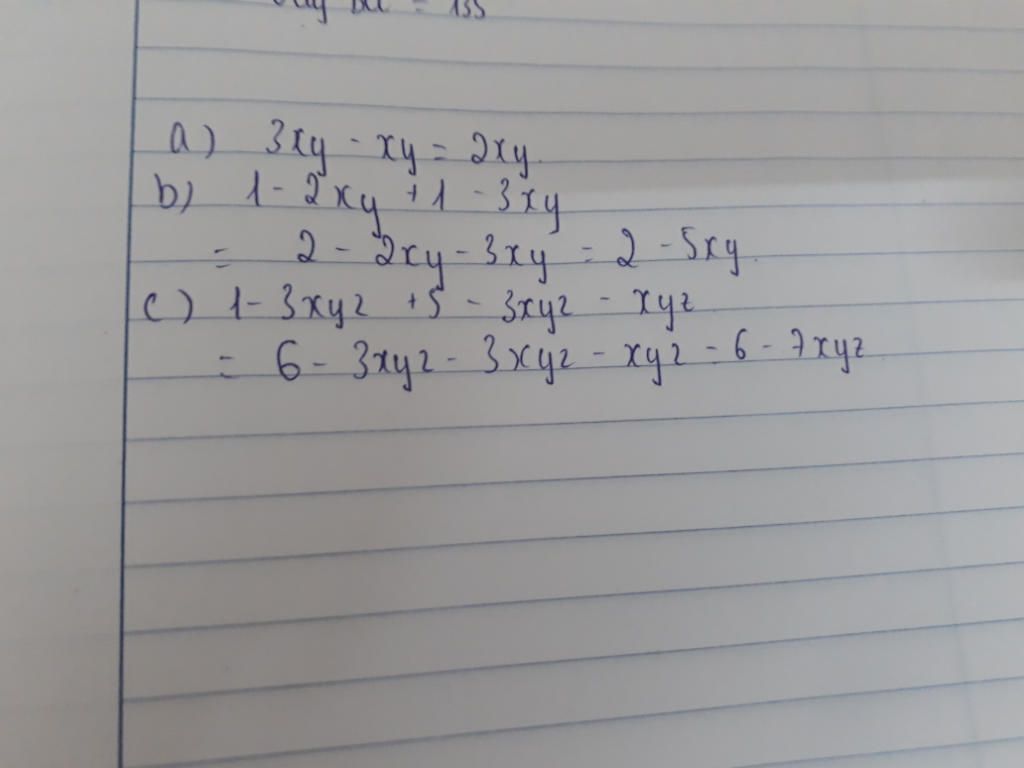 = 135
a) 3xy - xy = 2xy.
b) 1 - 2xy + 1 - 3xy
= 2 - 2xy - 3xy = 2 - 5xy.
c) 1 - 3xyz + 5 - 3xyz - xyz
= 6 - 3xyz - 3xyz - xyz = 6 - 7xyz